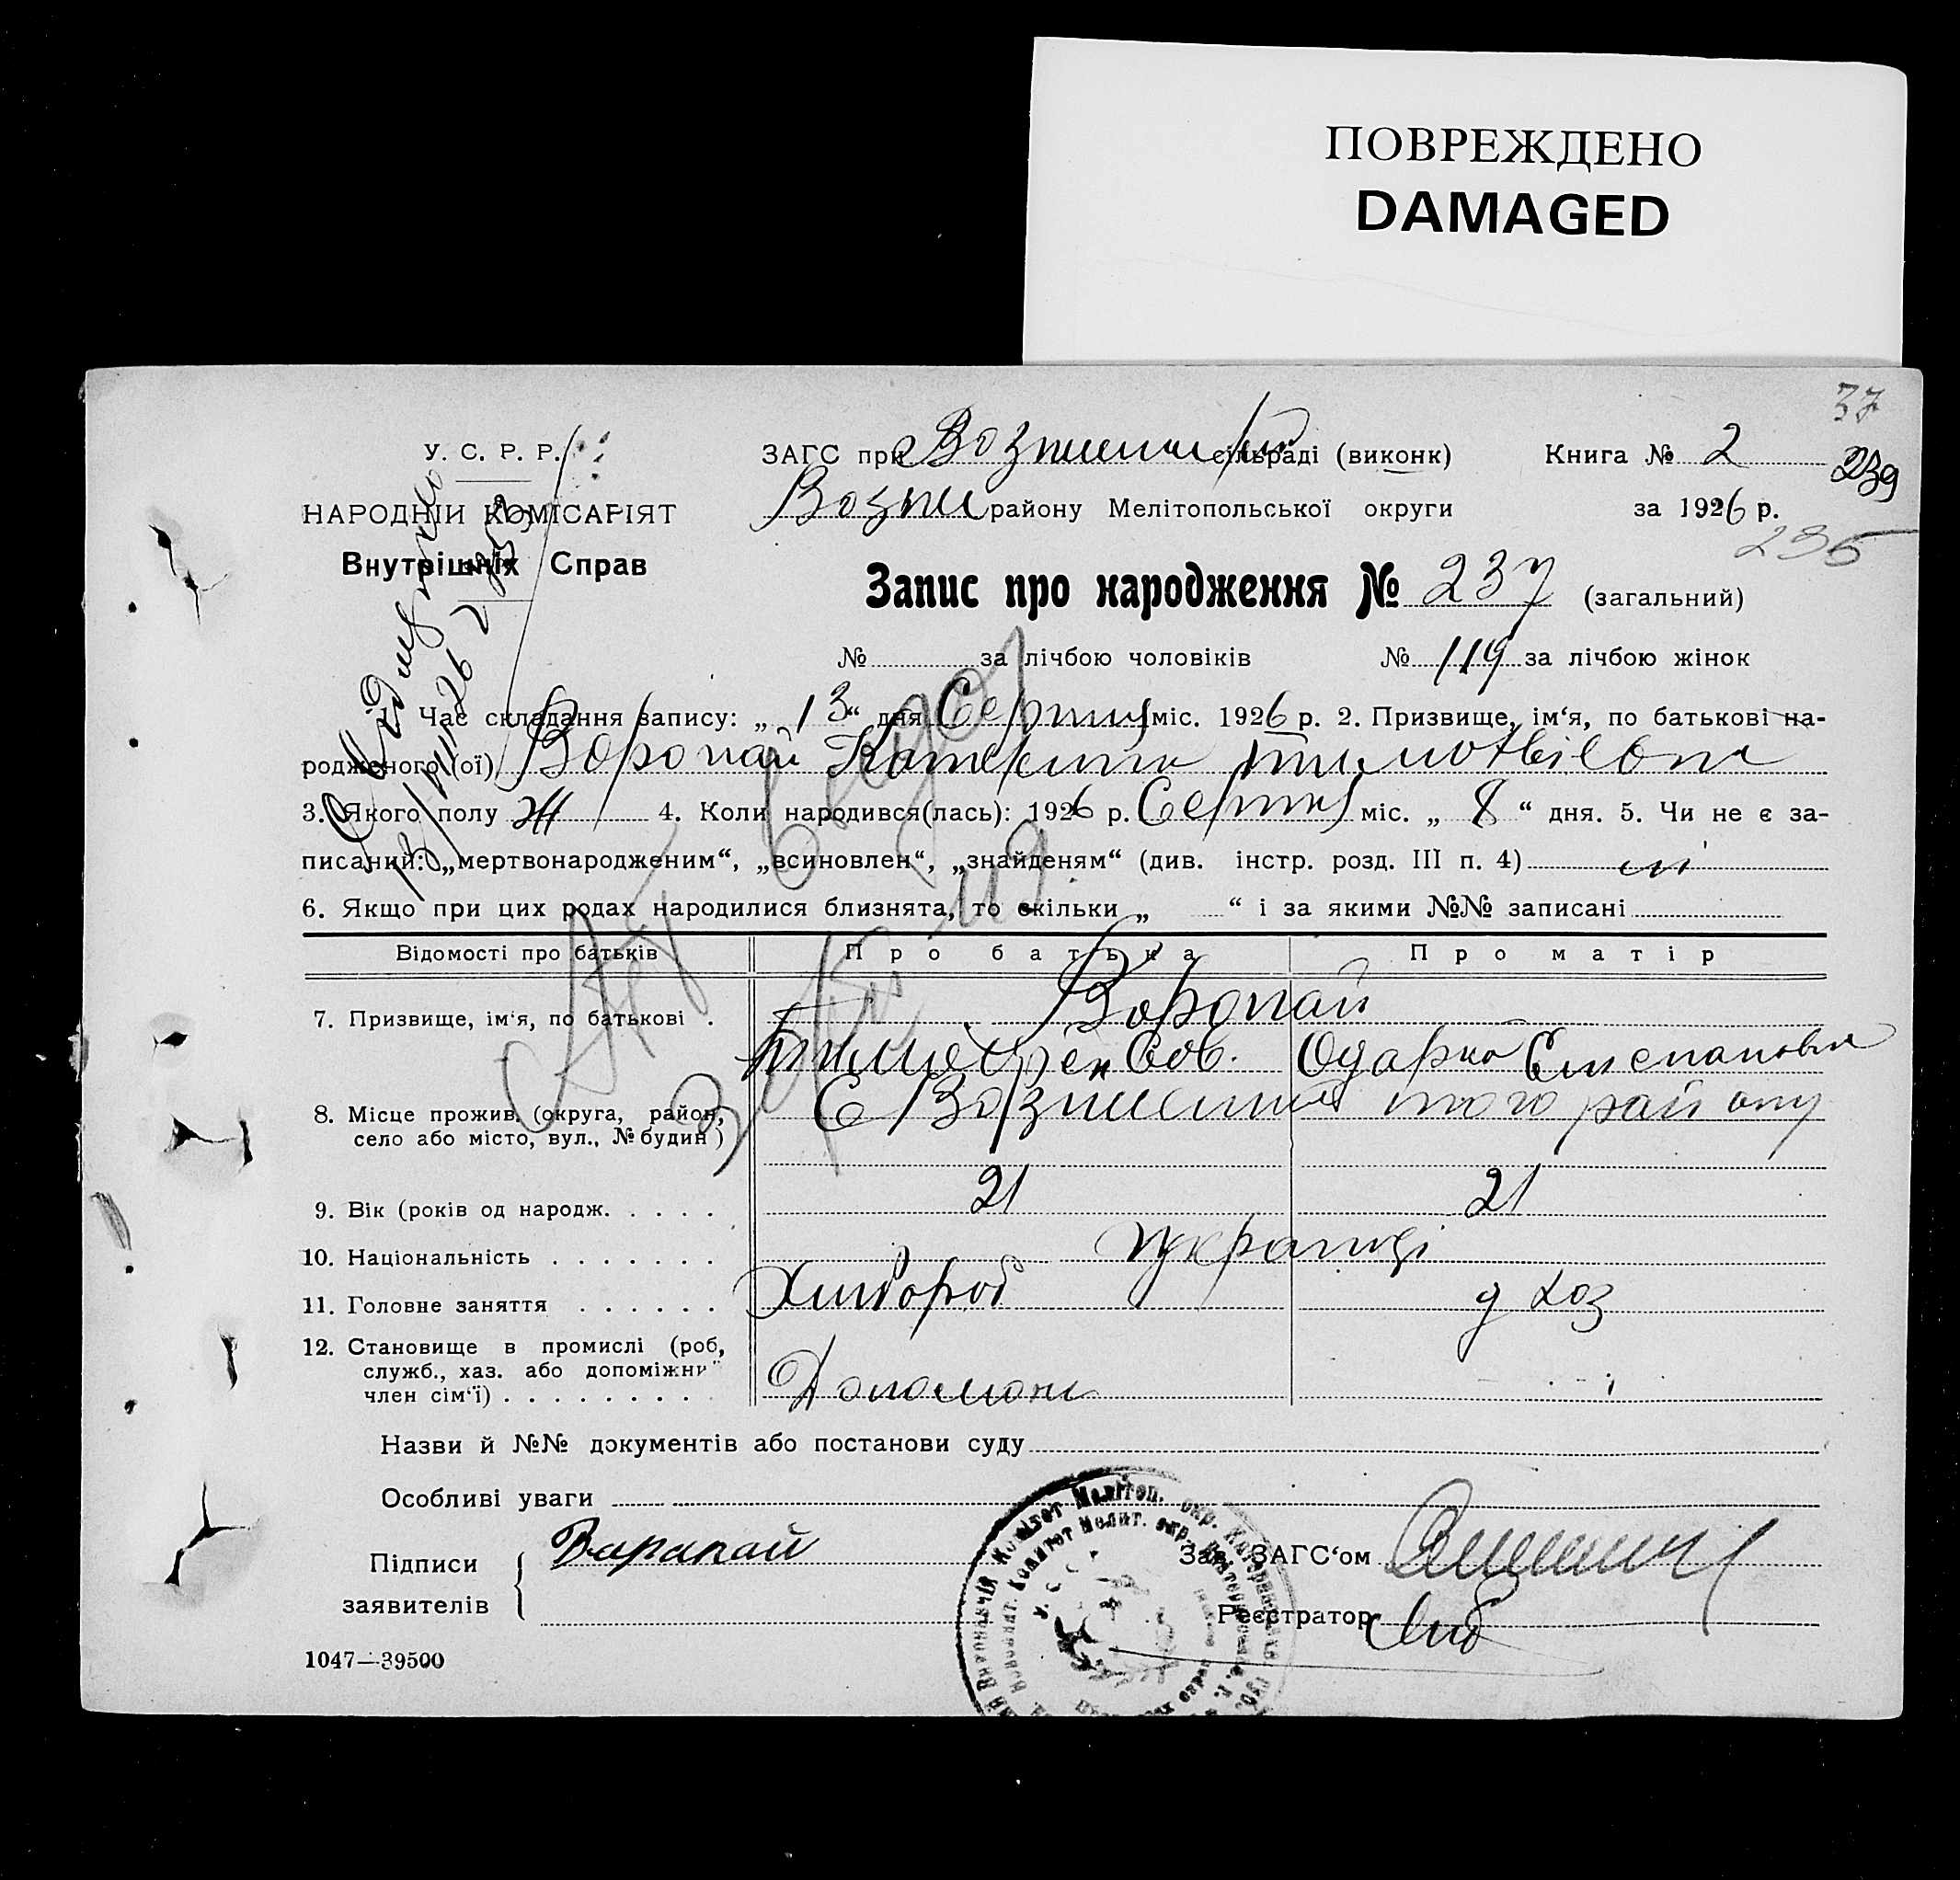 ПОВРЕЖДЕНО
DAMAGED
37
У. С. Р. Р.
ЗАГС при сільраді (виконк)
Книга № 2
239
НАРОДНІЙ КОМІСАРІЯТ
Возне району Мелітопольської округи
за 1926 р.
235
Внутрішніх Справ
Запис про народження № 237 (загальний)
№ за лічбою чоловіків № 119 за лічбою жінок
Час складання запису: „ 13 “ дня Серпня міс. 1926 р. 2. Призвище, ім‘я, по батькові на-
родженого (ої) Воропай Катерина
3. Якого полу Ж 4. Коли народився(лась): 1926 р. Серпня міс. „ 8 “ дня. 5. Чи не є за-
писаний: „мертвонародженим“, „всиновлен“, „знайденям“ (див. інстр. розд. III п. 4) ні
6. Якщо при цих родах народилися близнята, то скільки „ “ і за якими №№ записані
Відомості про батьків Про батька Про матір
7. Призвище, ім‘я, по батькові . Воропай
Одарка Степановна
8. Місце прожив. (округа, район, того району
село або місто, вул., № будин )
9. Вік (років од народж. . . . . 21 21
10. Національність . . . . . . . Українці
11. Головне заняття . . . . . . Хлібороб д хоз
12. Становище в промислі (роб,
служб., хаз. або допоміжни
член сім‘ї) . . . . . . . . . Допоможн
Назви й №№ документів або постанови суду
Особливі уваги
Підписи
заявителів
Варапай
Зав. ЗАГС‘ом
Реєстратор
1047—39500